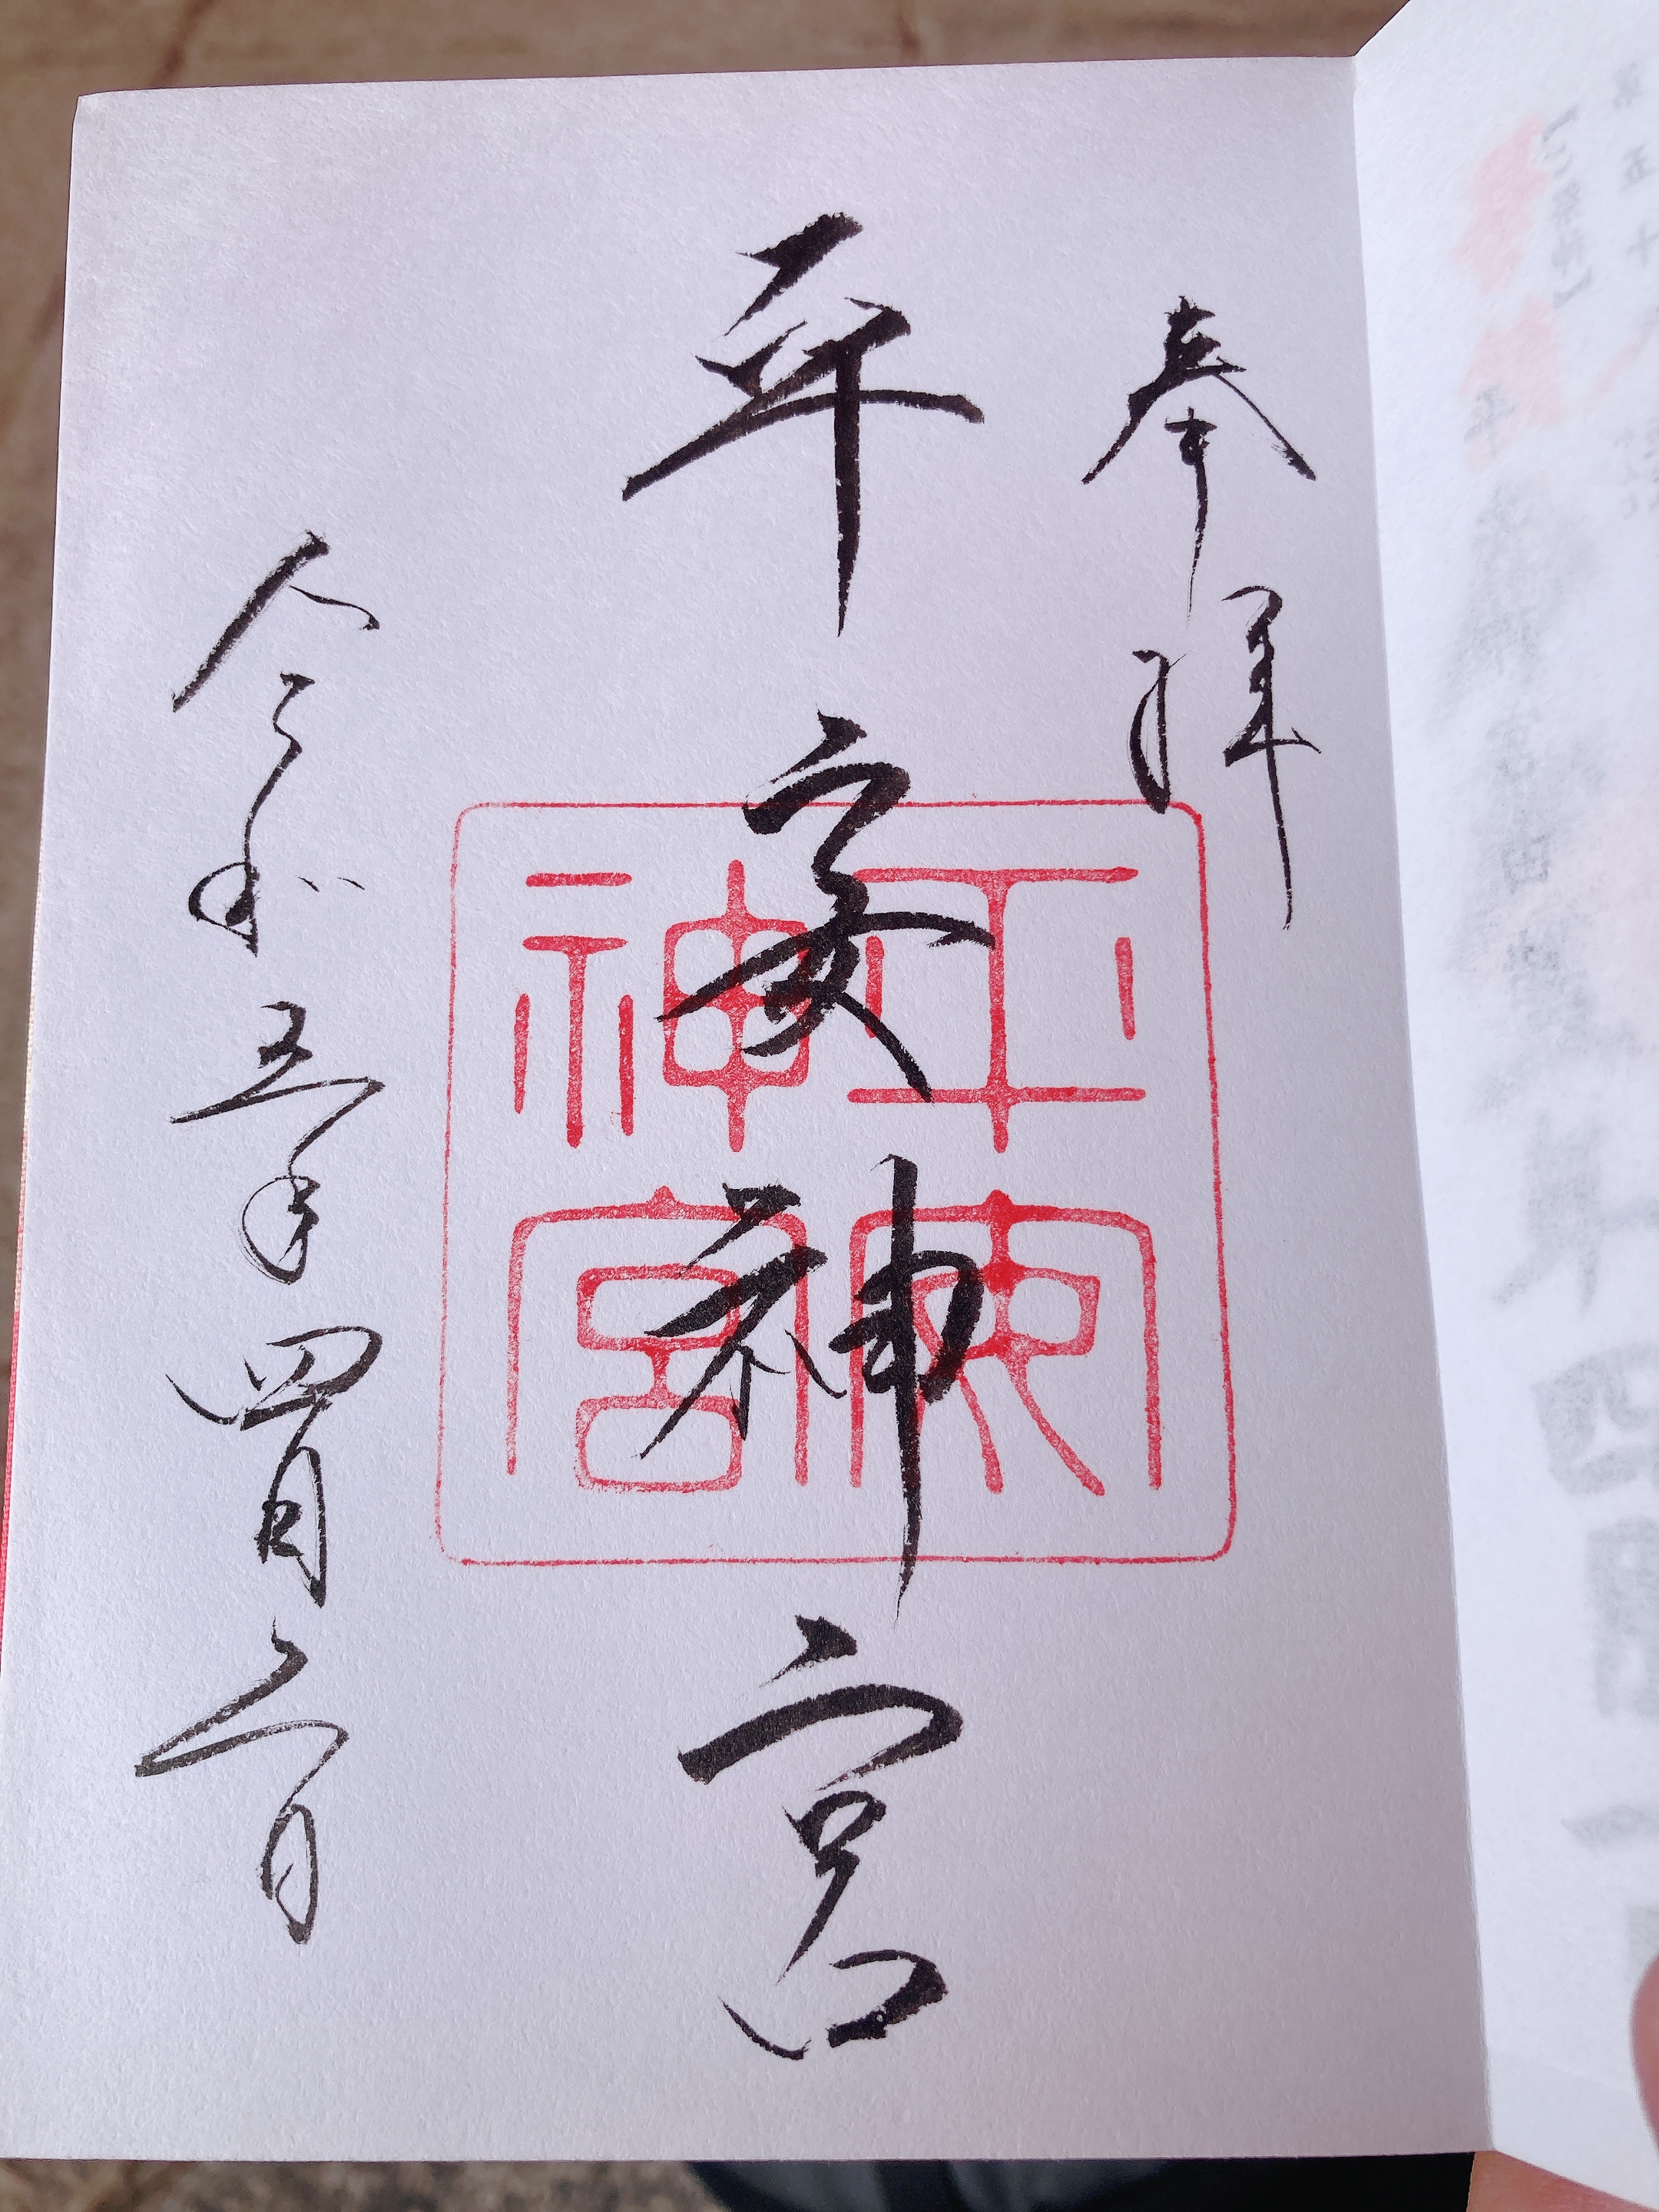 奉拝
平安神宮
平安
神宮
令和五年四月